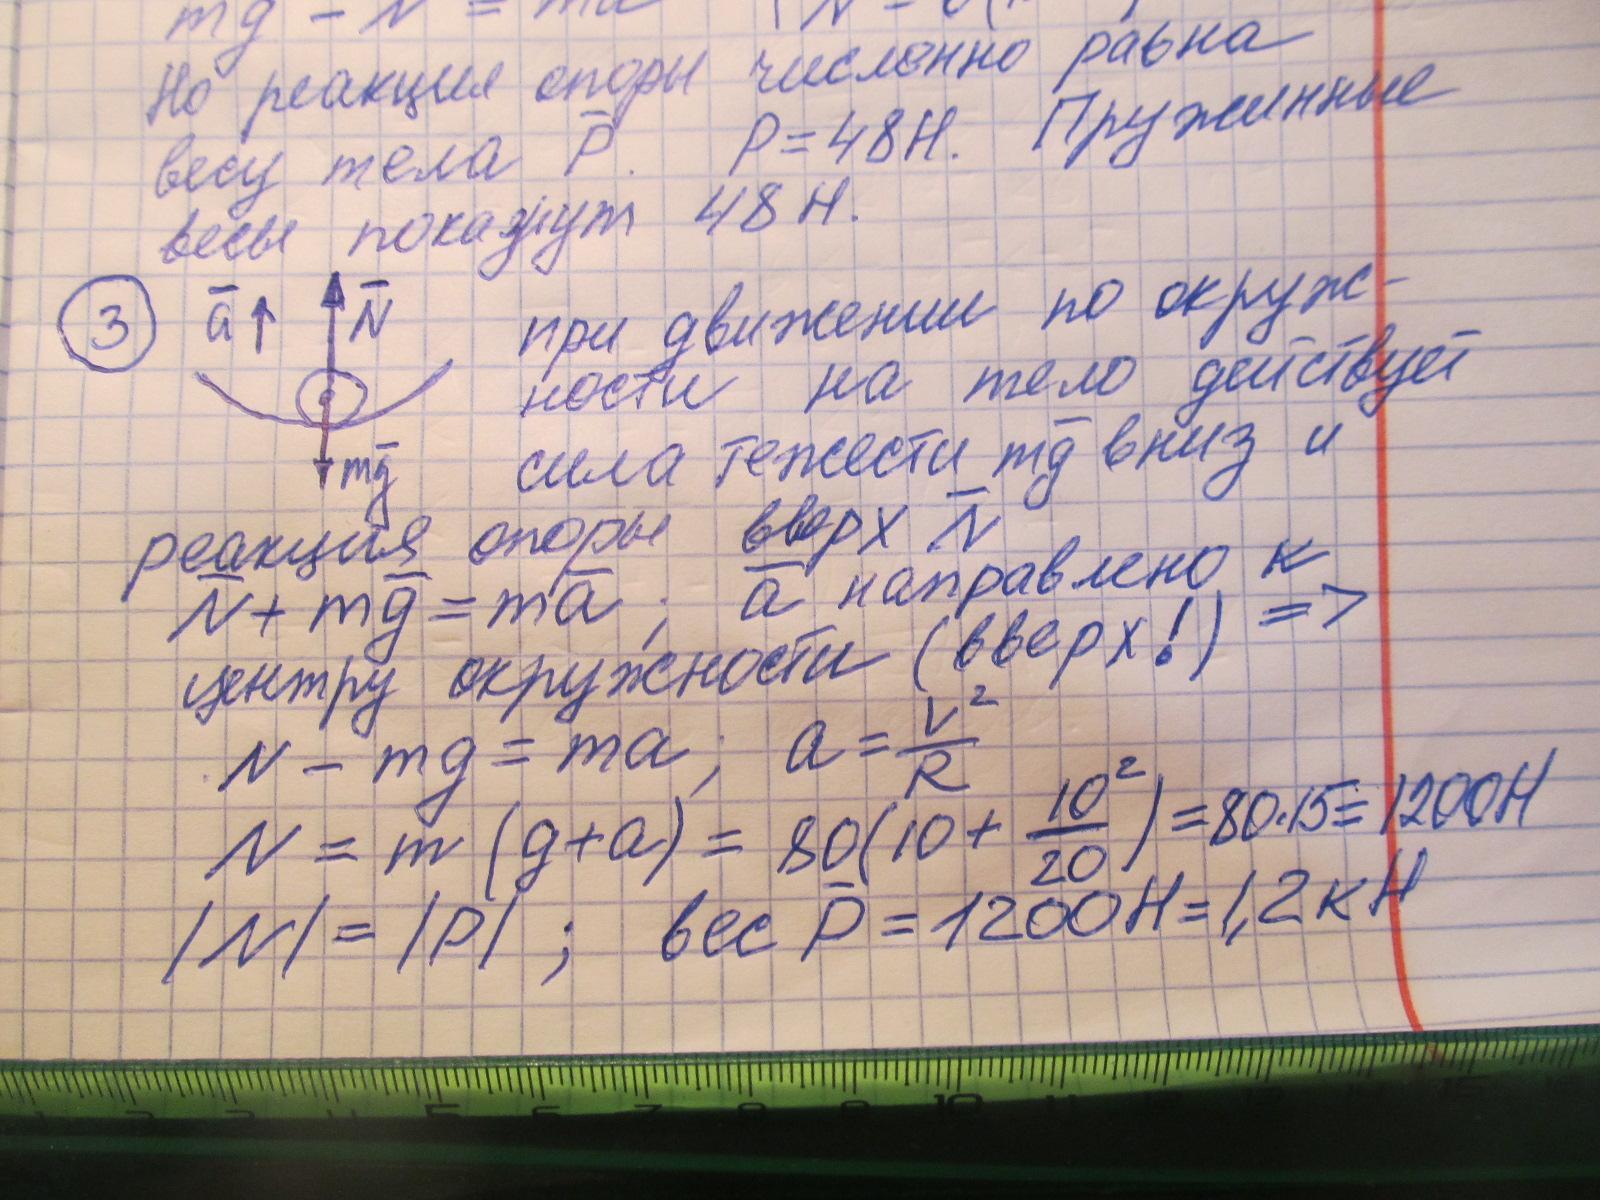 mg - N = ma
Но реакция опоры численно равна
весу тела P̅. P=48Н. Пружинные
весы покажут 48Н.
3 a̅ N̅ при движении по окруж-
ности на тело действует
mg̅ сила тежести mg̅ вниз и
реакция опоры вверх N̅
N̅ + mg̅ = ma̅ ; a̅ направлено к
центру окружности (вверх!) =>
N - mg = ma ; a = v²/R
N = m (g+a) = 80(10 + 10²/20) = 80·15 = 1200Н
|N| = |P| ; вес P̅ = 1200Н = 1,2кН
1 2 3 4 5 6 7 8 9 10 11 12 13 14 15